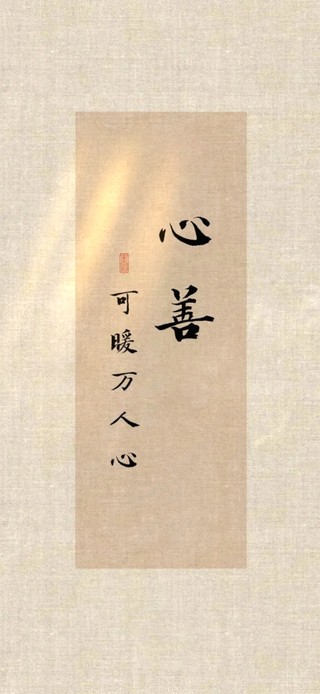 心善
可暖万人心